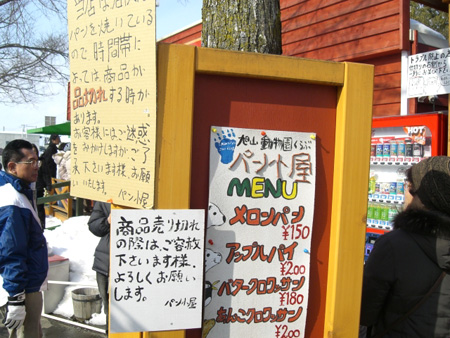 当店は店内で
パンを焼いている
ので、時間帯に
よっては商品が
品切れする時が
あります。
お客様にはご迷惑
をおかけしますが、ご了
承下さいます様、お願
いいたします。
パン小屋
商品売り切れ
の際は、ご容赦
下さいます様、
よろしくお願い
します。
パン小屋
旭山動物園くらぶ
パン小屋
MENU
メロンパン
¥150
アップルパイ
¥200
バタークロワッサン
¥180
あんこクロワッサン
¥200
トラブル防止の為
HOT